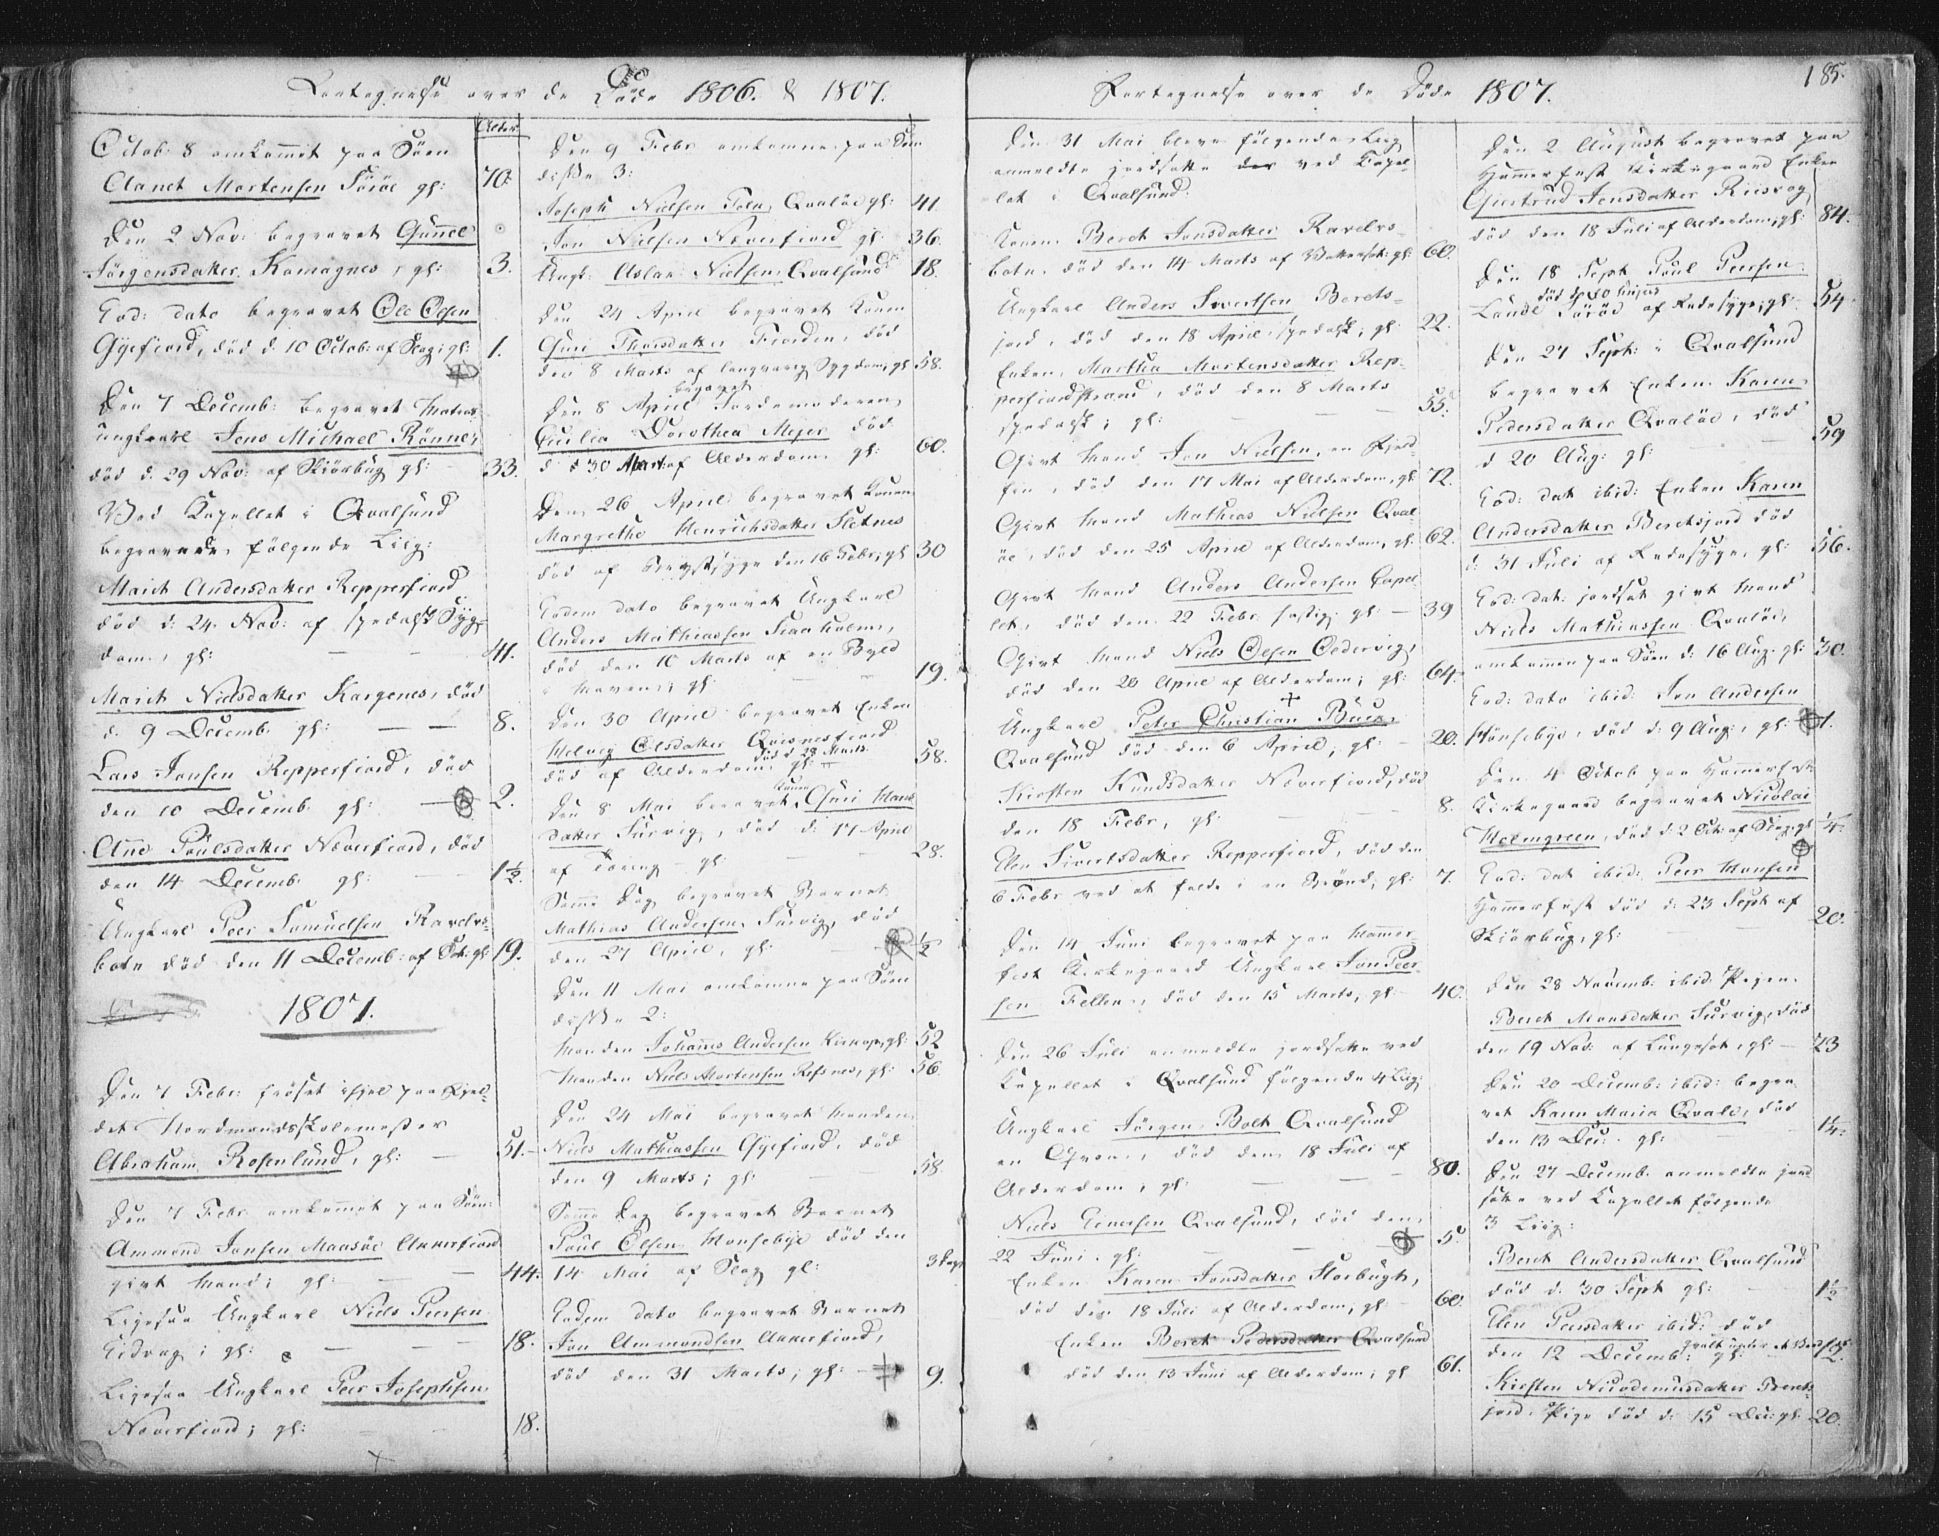 Fortegnelse over de Døde 1806. & 1807.
Alder
Octob: 8 omkommet paa Søen
Clanet Mortensen Sørøe gl: 70.
Den 2 Nov: begravet Gunnel
Jørgensdatter Komagnes, gl: 3.
Eod: dato begravet Ole Olsen
Gyefiord, død d. 10 Octob: af Slag; gl: 1.
Den 7 Decemb: begravet
ungkarl Jens Michael Rønne,
død d. 29 Nov: af Skiørbug gl: 33.
Ved Kapellet i Qvalsund
begravede følgende Liig:
Marit Andersdatter Repperfiord
død d: 24. Nov: af spedalsk Syg-
dom, gl: 41.
Marit Nielsdatter Kargenes, død
d. 9 Decemb. gl: 8.
Lars Jonsen Repperfiord, død
den 10 Decemb. gl: 2.
Ane Poulsdatter Næverfiord, død
den 14 Decemb. gl: 1½.
Ungkarl Peer Samuelsen Ravels-
botn død den 11 Decemb: af gl: 19.
1807.
Den 7 Febr: frøset ihjel paa Fjel-
det Nordmandsskolemester
Abraham Rosenlund, gl: 51.
Den 7 Febr. omkommet paa Søen:
Ammond Jonsen Maasøe Akkerfiord
givt Mand; gl: 44.
Ligesaa Ungkarl Niels Peersen
Eidvog; gl: 18.
Ligesaa Ungkarl Peer Josephsen
Næverfiord; gl: 18.
Den 9 Febr omkomne paa Søen
disse 3:
Joseph Nielsen Qvaløe gl: 41.
Jon Nielsen Næverfiord gl: 36.
Ungk: Aslak Nielsen Qvalsund 18.
Den 24 April begravet Konen
Guri Thorsdatter Fiorden, død
den 8 Marts af langvarig Sygdom; gl 58.
begravet
Den 8 April Jordemoderen
Cecilia Dorothea Mejer død
d 30 Mart af Alderdom gl: 60.
Den 26 April begravet Konen
Margrethe Henrichsdatter Sletnes
død af Brystsyge den 16 Febr; gl 30
Eodem dato begravet Ungkarl
Anders Mathiassen Kraaholm,
død den 10 Marts af en Byld
i Maven; gl: 19.
Den 30 April begravet Enken
Helvig Olsdatter Qvisnesfiord
død d 28 Marts
død af Alderdom gl: 58.
Konen
Den 8 Mai begravet Guri Hans
datter Survig, død d: 17 April
af Tæring gl: 28.
Samme Dag begravet Barnet
Mathias Andersen Survig, død
den 27 April, gl: ½
Den 11 Mai omkomne paa Søen
disse 2:
Manden Johannes Andersen gl: 52
Manden Niels Mortensen Refsnes, gl: 56.
Den 24 Mai begravet Manden
Niels Mathiassen Gyefiord, død
den 9 Marts; gl: 58
Samme Dag begravet Barnet
Poul Olsen Hønsebye død den
14 Mai af Slag gl: 3 Dage
Eodem dato begravet Barnet
Jon Ammondsen Akkerfiord,
død den 31 Marts; gl: 9.
Fortegnelse over de Døde 1807.
185.
Den 31 Mai bleve følgende Liig
anmeldte jordsatte der ved Kapel-
let i Qvalsund.
Konen Beret Jonsdatter Ravels-
botn, død den 14 Marts af gl: 60.
Ungkarl Anders Sivertsen Berets-
jord, død den 18 April spedalsk; gl: 22.
Enken Martha Mortensdatter Rep-
perfiordstrand, død den 8 Marts
spedalsk; gl: 55.
Givt Mand Jon Nielsen, en Fjeld-
fin, død den 17 Mai af Alderdom, gl: 72.
Givt Mand Mathias Nielsen Qval-
øe, død den 25 April af Alderdom, gl: 62.
Givt Mand Anders Andersen Capel-
let, død den 22 Febr. hastig; gl: 39
Givt Mand Niels Olsen Oldervig,
død den 20 April af Alderdom; gl: 64.
Ungkarl Peter Christian Buck,
Qvalsund død den 6 April; gl: 20.
Kirsten Knudsdatter Næverfiord, død
den 18 Febr, gl: 8.
Elen Sivertsdatter Repperfiord, død den
6 Febr ved at falde i en Brønd, gl: 7.
Den 14 Juni begravet paa Hammer-
fest Kirkegaard Ungkarl Jon Peer-
sen Fellen, død den 15 Marts, gl: 40.
Den 26 Juli anmeldte jordsatte ved
Kapellet i Qvalsund følgende 4 Liig:
Ungkarl Jørgen Bolt Qvalsund
en Qvæn, død den 18 Juli af
Alderdom, gl: 80.
Niels Einersen Qvalsund, død den
22 Juni. gl: 5.
Enken Karen Jonsdatter Storbugt,
død den 18 Juli af Alderdom, gl: 60.
Enken Beret Pedersdatter Qvalsund
død den 13 Juni af Alderdom, gl 61.
Den 2 August begravet paa
Hammerfest Kirkegaard Enken
Giertrud Jensdatter Riisvog
død den 18 Juli af Alderdom; gl: 84.
Den 18 Sept Poul Peersen
død d 10 hujus
Lande Sørøe af Radesyge; gl: 54
Den 27 Sept: i Qvalsund
begravet Enken Karen
Pedersdatter Qvaløe, død
d 20 Aug: gl: 59
Eod: dat ibid: Enken Karen
Andersdatter Beretsjord død
d: 31 Juli af Radesyge, gl: 56.
Eod: dat: jordsat givt Mand
Niels Mathiassen Qvaløe,
omkommen paa Søen d: 16 Aug. gl: 30.
Eod: dato ibid: Jon Andersen
Hønsebye, død d: 9 Aug:, gl: 1.
Den 4 Octob paa Hammerfest
Kirkegaard begravet Nicolai
Holmgreen, død d: 2 Oct: af Slag; gl ¼
Eod: dat ibid: Peer Hansen
Hammerfest død d: 23 Sept af
Skiørbug, gl: 20.
Den 28 Novemb: ibid: Pigen
Beret Monsdatter Survig, død
den 19 Nov: af Lungesot, gl: 23
Den 20 Decemb: ibid: begra-
vet Karen Maria Qvale, død
den 13 Dec: gl: 1¼
Den 27 Decemb. anmeldte jord-
satte ved Kapellet følgende
3 Liig:
Beret Andersdatter Qvalsund
død d: 30 Sept gl: 1½
Elen Peersdatter ibid: død
den 12 Decemb: gl: ½.
Kirsten Nicodemusdatter Berets-
jord, Pige død d: 15 Dec: gl: 20.